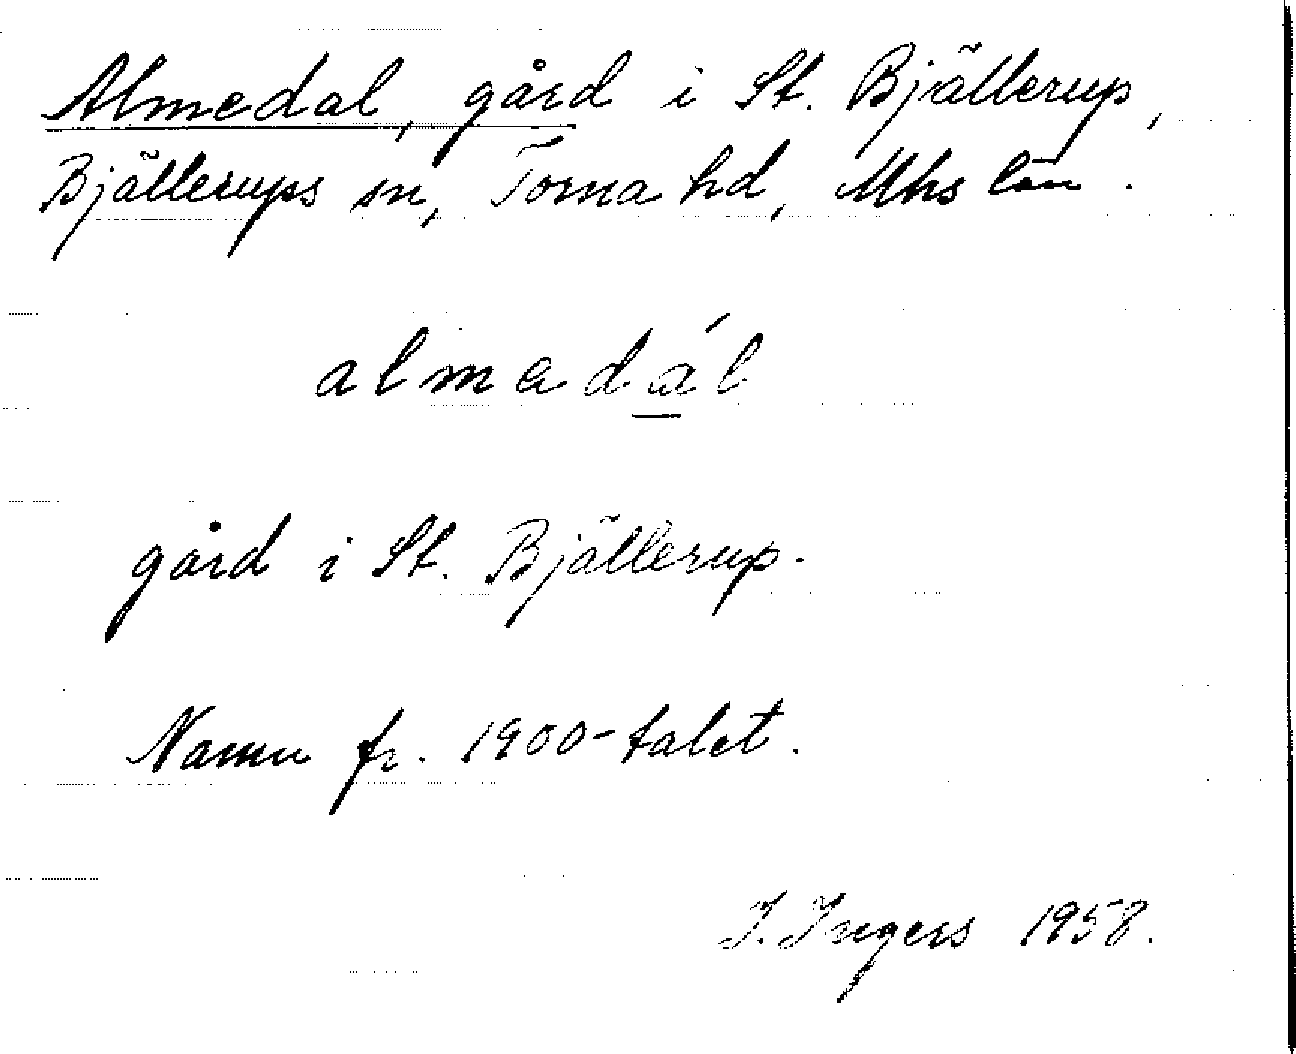 Almedal, gård i St. Bjällerup,
Bjällerups sn, Torna hd, Mhs län.
almadál
gård i St. Bjällerup.
Namn fr. 1900-talet.
I. Ingers 1958.